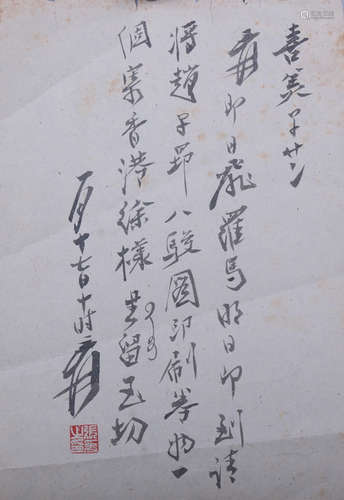 喜美子
爰即日飛羅馬明日即到請
將趙子昂八駿圖印刷券物一
個寄香港徐樣先留玉切
一月十七日十時爰